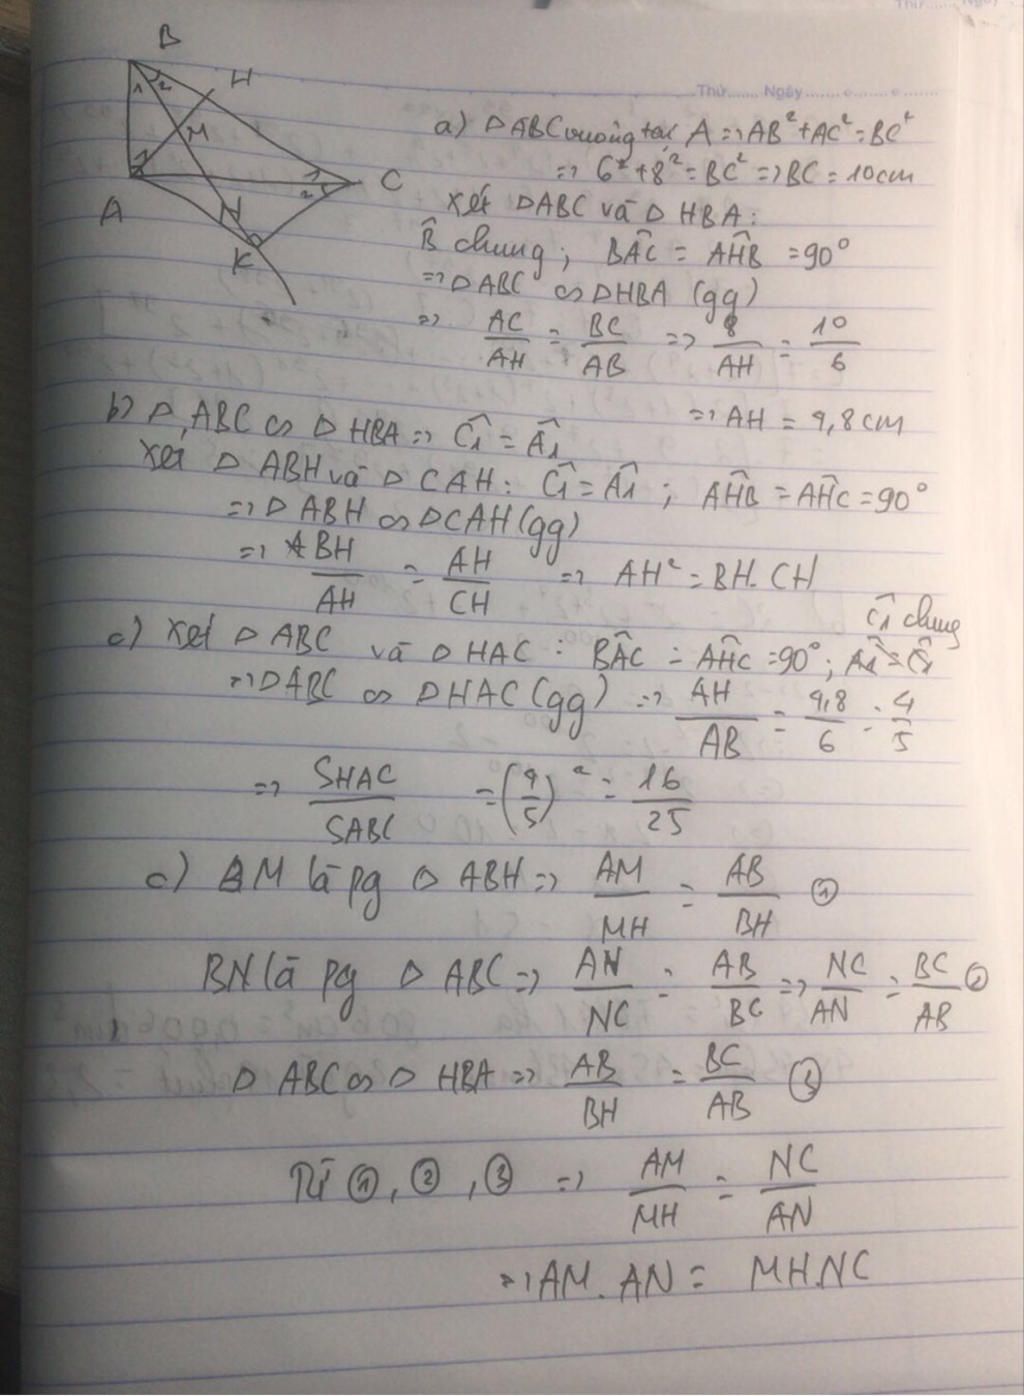 Thứ....... Ngày...............
B
1 2
H
M
1
C
2
A
N
K
a) Δ ABC vuông tại A => AB² + AC² = BC²
=> 6² + 8² = BC² => BC = 10cm
Xét Δ ABC và Δ HBA:
B̂ chung; BÂC = AĤB = 90°
=> Δ ABC ∽ Δ HBA (gg)
=> AC/AH = BC/AB => 8/AH = 10/6
=> AH = 4,8cm
b) Δ ABC ∽ Δ HBA => Ĉ1 = Â1
Xét Δ ABH và Δ CAH: Ĉ1 = Â1; AĤB = AĤC = 90°
=> Δ ABH ∽ Δ CAH (gg)
=> BH/AH = AH/CH => AH² = BH.CH
Ĉ1 chung
c) Xét Δ ABC và Δ HAC: BÂC = AĤC = 90°;
=> Δ ABC ∽ Δ HAC (gg) => AH/AB = 4,8/6 = 4/5
=> SHAC/SABC = (4/5)² = 16/25
c) BM là pg Δ ABH => AM/MH = AB/BH ①
BN là pg Δ ABC => AN/NC = AB/BC => NC/AN = BC/AB ②
Δ ABC ∽ Δ HBA => AB/BH = BC/AB ③
Từ ①, ②, ③ => AM/MH = NC/AN
=> AM.AN = MH.NC